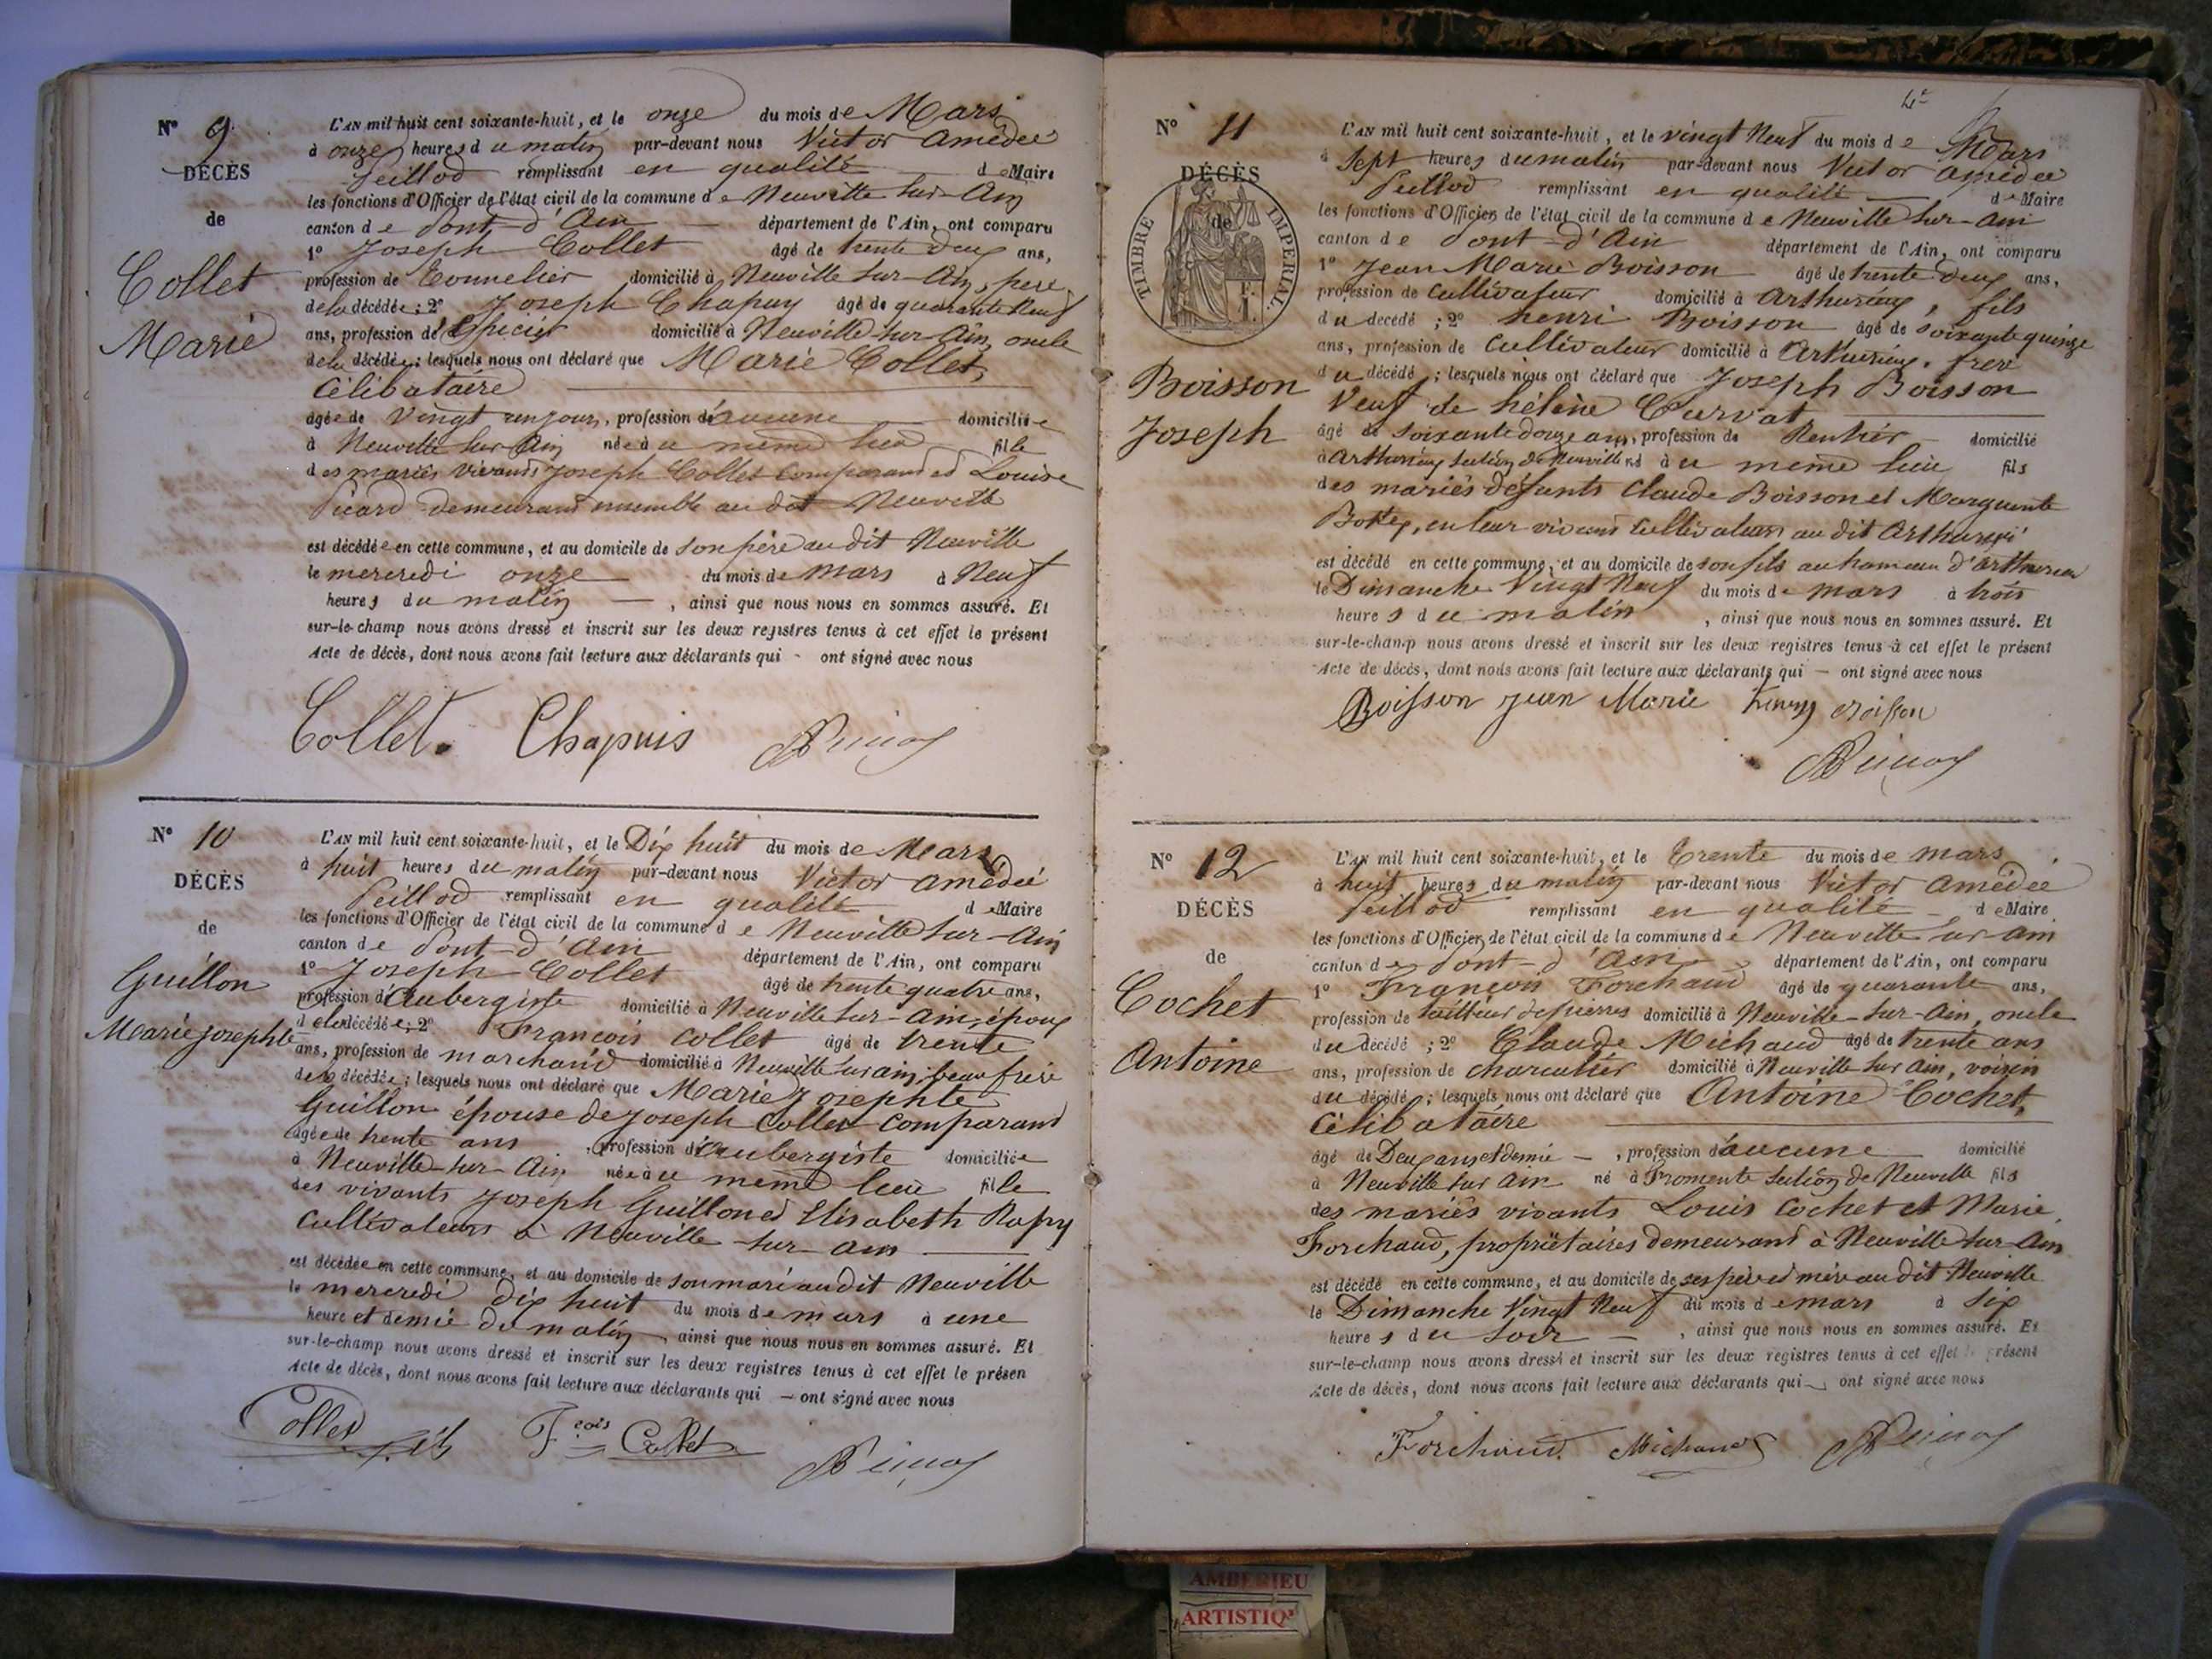 N° 9
DÉCÈS
de
Collet
Marie
L'AN mil huit cent soixante-huit, et le onze du mois de Mars
à onze heures du matin par-devant nous Victor Amédée
Peillod remplissant en qualité de Maire
les fonctions d'Officier de l'état civil de la commune de Neuville sur-Ain
canton de Pont-d'Ain département de l'Ain, ont comparu
1° Joseph Collet âgé de trente deux ans,
profession de Tonnelier domicilié à Neuville sur-Ain, père
de la décédée ; 2° Joseph Chapuy âgé de quarante neuf
ans, profession d'Epicier domicilié à Neuville-sur-Ain, oncle
de la décédée ; lesquels nous ont déclaré que Marie Collet,
Célibataire
âgée de vingt un jours, profession d'aucune domiciliée
à Neuville sur Ain née au même lieu fille
des mariés vivants Joseph Collet comparand et Louise
Picard demeurant ensemble au dit Neuville
est décédée en cette commune, et au domicile de son père au dit Neuville
le mercredi onze du mois de mars à Neuf
heures du matin, ainsi que nous nous en sommes assuré. Et
sur-le-champ nous avons dressé et inscrit sur les deux registres tenus à cet effet le présent
Acte de décès, dont nous avons fait lecture aux déclarants qui - ont signé avec nous
Collet. Chapuis
N° 10
DÉCÈS
de
Guillon
Marie josephte
L'AN mil huit cent soixante-huit, et le Dix huit du mois de Mars
à huit heures du matin par-devant nous Victor Amédée
Peillod remplissant en qualité de Maire
les fonctions d'Officier de l'état civil de la commune de Neuville sur-Ain
canton de Pont-d'Ain département de l'Ain, ont comparu
1° Joseph Collet âgé de trente quatre ans,
profession d'Aubergiste domicilié à Neuville sur-ain, époux
de la décédée ; 2° François Collet âgé de trente
ans, profession de marchand domicilié à Neuville sur ain, beau frère
de la décédée ; lesquels nous ont déclaré que Marie Josephte
Guillon épouse de Joseph Collet comparand
âgée de trente ans, profession d'aubergiste domiciliée
à Neuville-sur-Ain née au même lieu fille
des vivants Joseph Guillon et Elisabeth Rapy
Cultivateurs à Neuville sur ain
est décédée en cette commune, et au domicile de son mari au dit Neuville
le mercredi dix huit du mois de mars à une
heure et demie du matin, ainsi que nous nous en sommes assuré. Et
sur-le-champ nous avons dressé et inscrit sur les deux registres tenus à cet effet le présen
Acte de décès, dont nous avons fait lecture aux déclarants qui - ont signé avec nous
Collet Fçois Collet
N° 11
DÉCÈS
de
TIMBRE IMPERIAL
Boisson
Joseph
L'AN mil huit cent soixante-huit, et le vingt Neuf du mois de Mars
à Sept heures du matin par-devant nous Victor Amédée
Peillod remplissant en qualité de Maire
les fonctions d'Officier de l'état civil de la commune de Neuville sur-ain
canton de Pont-d'Ain département de l'Ain, ont comparu
1° Jean Marie Boisson âgé de trente deux ans,
profession de Cultivateur domicilié à Arthurieux, fils
du décédé ; 2° henri Boisson âgé de soixante quinze
ans, profession de Cultivateur domicilié à Arthurieux, frère
du décédé ; lesquels nous ont déclaré que Joseph Boisson
Veuf de hélène Curvat
âgé de soixante douze ans, profession de Rentier domicilié
à Arthurieux section de Neuville né au même lieu fils
des mariés défunts Claude Boisson et Marguerite
en leur vivant cultivateurs au dit
est décédé en cette commune, et au domicile de son fils au hameau d'arthurieux
le Dimanche Vingt Neuf du mois de Mars à trois
heures du matin, ainsi que nous nous en sommes assuré. Et
sur-le-champ nous avons dressé et inscrit sur les deux registres tenus à cet effet le présent
Acte de décès, dont nous avons fait lecture aux déclarants qui - ont signé avec nous
Boisson jean Marie
N° 12
DÉCÈS
de
Cochet
Antoine
L'AN mil huit cent soixante-huit, et le Trente du mois de mars
à huit heures du matin par-devant nous Victor Amédée
Peillod remplissant en qualité de Maire
les fonctions d'Officier de l'état civil de la commune de Neuville sur ain
canton de Pont-d'Ain département de l'Ain, ont comparu
1° François Forchaud âgé de quarante ans,
profession de tailleur de pierres domicilié à Neuville-sur-Ain, oncle
du décédé ; 2° Claude Michaud âgé de trente ans
ans, profession de charcutier domicilié à Neuville sur Ain, voisin
du décédé ; lesquels nous ont déclaré que Antoine Cochet,
Célibataire
âgé de Deux ans et demi -, profession d'aucune domicilié
à Neuville sur Ain né à Fromente section de Neuville fils
des mariés vivants Louis Cochet et Marie
Forchaud, propriétaires demeurant à Neuville sur-Ain
est décédé en cette commune, et au domicile de ses père et mère au dit Neuville
le Dimanche Vingt Neuf du mois de mars à six
heures du soir, ainsi que nous nous en sommes assuré. Et
sur-le-champ nous avons dressé et inscrit sur les deux registres tenus à cet effet le présent
Acte de décès, dont nous avons fait lecture aux déclarants qui - ont signé avec nous
Forchaud. Michaud
AMBERIEU
ARTISTIQ